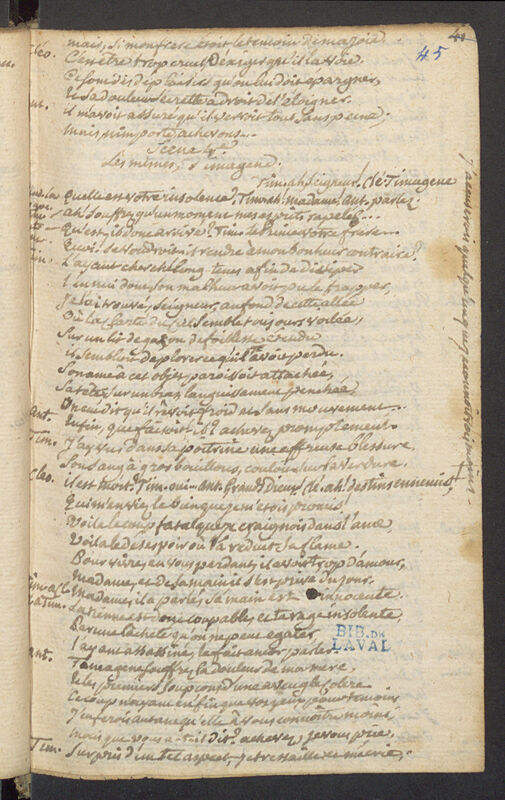 45
mais, si mon frere étoit le temoin de ma joie.
Cleo. C'en être trop cruel d'exiger qu'il la voie.
Ce sont des déplaisirs qu'on lui doit épargner,
Et sa douleur secrette a droit de l'éloigner.
ant. il m'avoit assuré qu'il verroit tout sans peine;
mais, n'importe, achevons...
Scene 4e.
Les mêmes, Timagene.
Tim. ah Seigneur. Cle. Timagene
Quelle est votre insolence? Tim. ah! madame. ant. parlez.
ah! Souffrez qu'un moment mes esprits rapelez...
Qu'est-il donc arrivé? Tim. Le prince votre frere...
Quoi! se voudroit-il rendre à mon bonheur contraire?
Tim. L'ayant cherché long-tems afin de dissiper
l'ennui dont son malheur avoit pu le frapper,
Je l'ai trouvé, Seigneur, au fond de cette allée
Où la clarté du ciel semble toujours voilée,
Sur un lit de gazon de foiblesse étendu
il sembloit déplorer ce qu'il avoit perdu.
Son ame à cet objet paroissoit attachée,
Sa tête sur un bras languissament penchée,
On eut dit qu'il rêvoit froid et sans mouvement...
ant. Enfin, que faisoit-il? achevez promptement.
Tim. J'ai vu dans sa poitrine une affreuse blessure,
Son sang à gros bouillons, couloit sur la verdure.
Cleo. il est mort? Tim. oui... ant. Grands Dieux! Cle. ah! destins ennemis,
Qui m'enviez le bien que je m'étois promis!
Voila le coup fatal que je craignois dans l'ame,
Voila le désespoir où l'a reduit sa flame.
Pour vivre, en vous perdant, il avoit trop d'amour,
madame, et de sa main il s'est privé du jour.
Madame, il a parlé, sa main est innocente.
La tienne est donc coupable, et ta rage insolente,
Par une lacheté qu'on ne peut égaler,
l'ayant assassiné, le fait encor parler.
ant. Timagene, souffrez la douleur de ma mere,
Et les premiers soupçons d'une aveugle colere.
Ce coup n'ayant enfin que vos yeux pour temoins,
J'en ferois autant qu'elle à vous connoître moins,
mais que vous a-t-il dit? achevez, je vous prie,
Tim. Surpris d'un tel aspect, je tressaille et m'écrie,
BIB. DE
LAVAL